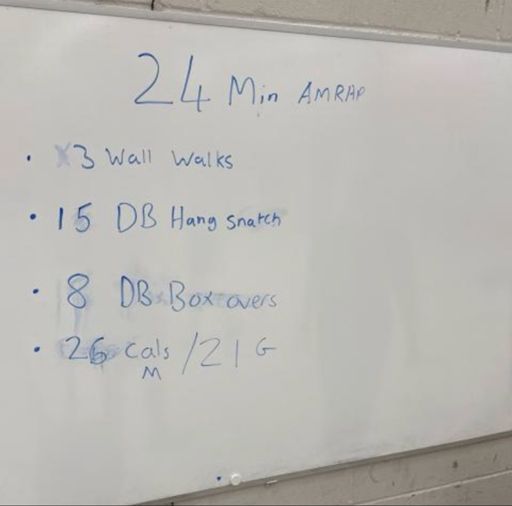 24 Min AMRAP
• 3 Wall Walks
• 15 DB Hang snatch
• 8 DB Box overs
• 26 Cals / 21 G
M